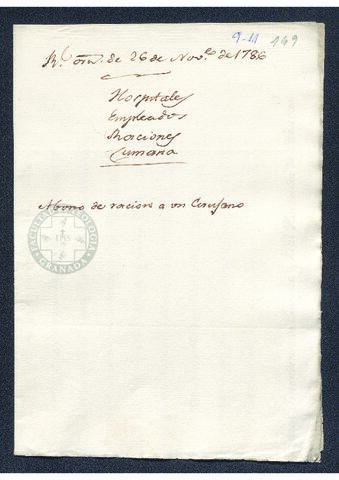 9-11 149
Rl. orn. de 26 de Nove. de 1786
Hospitales
Empleados
Raciones
Cumana
Abono de racion a un Cirujano
FACULTAD TEOLOGIA
GRANADA